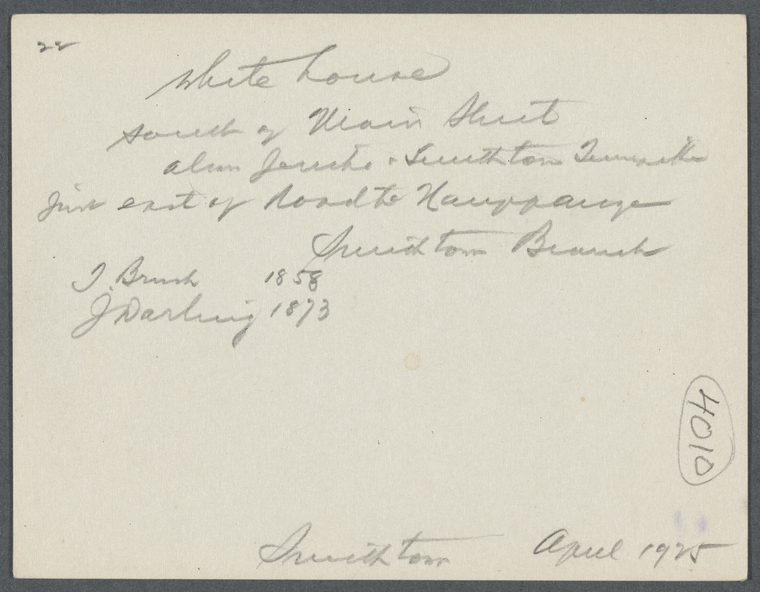 22
White house
south of Main Street
also Jericho & Smithtown Turnpike
Just east of Road to Hauppauge
Smithtown Branch
T. Brush 1858
J Darling 1873
4010
Smithtown April 1925